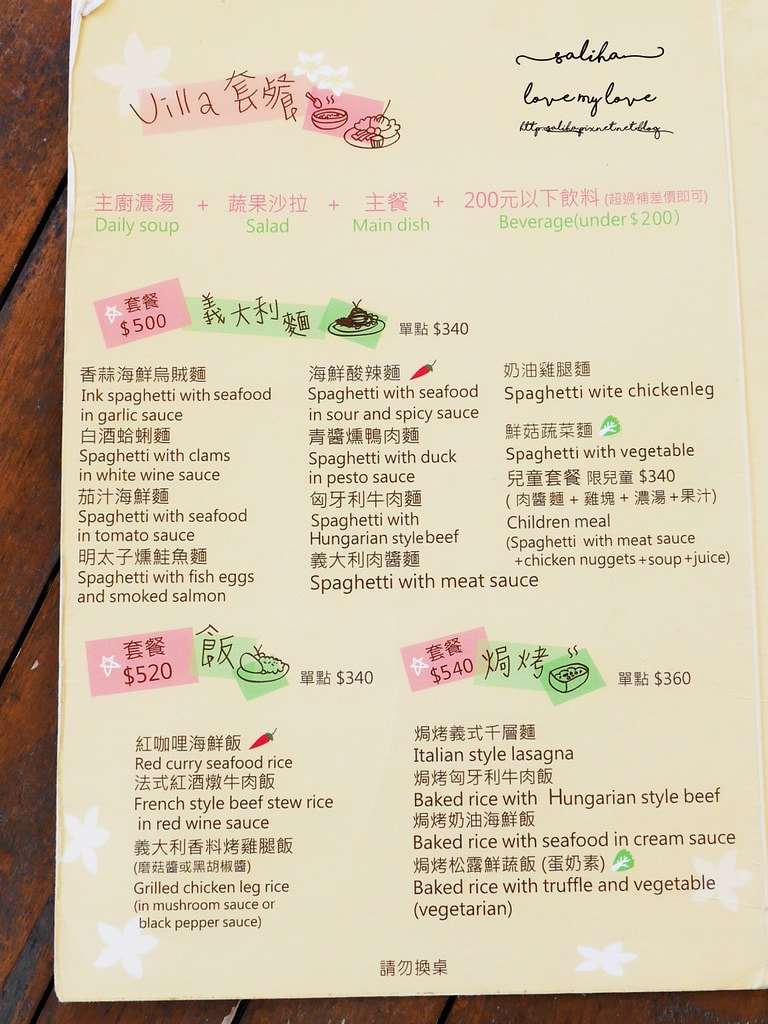 Villa 套餐
saliha
love my love
http:saliha.pixnet.net.blog
主廚濃湯 + 蔬果沙拉 + 主餐 + 200元以下飲料 (超過補差價即可)
Daily soup Salad Main dish Beverage(under $200)
套餐
$500
義大利麵
單點 $340
香蒜海鮮烏賊麵
Ink spaghetti with seafood
in garlic sauce
白酒蛤蜊麵
Spaghetti with clams
in white wine sauce
茄汁海鮮麵
Spaghetti with seafood
in tomato sauce
明太子燻鮭魚麵
Spaghetti with fish eggs
and smoked salmon
海鮮酸辣麵
Spaghetti with seafood
in sour and spicy sauce
青醬燻鴨肉麵
Spaghetti with duck
in pesto sauce
匈牙利牛肉麵
Spaghetti with
Hungarian style beef
義大利肉醬麵
Spaghetti with meat sauce
奶油雞腿麵
Spaghetti wite chickenleg
鮮菇蔬菜麵
Spaghetti with vegetable
兒童套餐 限兒童 $340
(肉醬麵+雞塊+濃湯+果汁)
Children meal
(Spaghetti with meat sauce
+chicken nuggets+soup+juice)
套餐
$520
飯
單點 $340
紅咖哩海鮮飯
Red curry seafood rice
法式紅酒燉牛肉飯
French style beef stew rice
in red wine sauce
義大利香料烤雞腿飯
(磨菇醬或黑胡椒醬)
Grilled chicken leg rice
(in mushroom sauce or
black pepper sauce)
套餐
$540
焗烤
單點 $360
焗烤義式千層麵
Italian style lasagna
焗烤匈牙利牛肉飯
Baked rice with Hungarian style beef
焗烤奶油海鮮飯
Baked rice with seafood in cream sauce
焗烤松露鮮蔬飯 (蛋奶素)
Baked rice with truffle and vegetable
(vegetarian)
請勿換桌